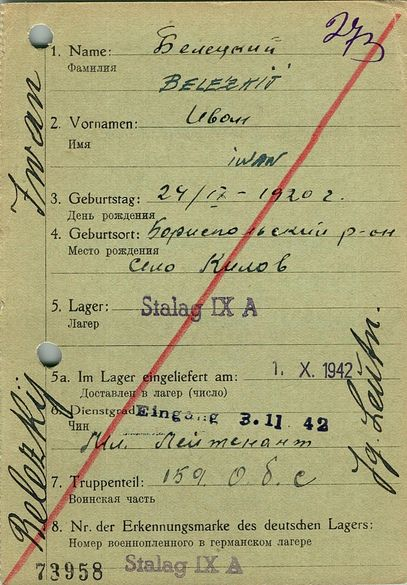 1. Name: Белецкий
Фамилия
BELEZKIJ
2. Vornamen: Иван
Имя
IWAN
3. Geburtstag: 24/IV - 1920 г.
День рождения
4. Geburtsort: Бориспольский р-он
Место рождения
село Килов
5. Lager: Stalag IX A
Лагерь
5a. Im Lager eingeliefert am: 1. X. 1942
Доставлен в лагерь (число)
6. Dienstgrad: Eingang 3. 11. 42
Чин
Мл. Лейтенант
7. Truppenteil: 159 О. б. с
Воинская часть
8. Nr. der Erkennungsmarke des deutschen Lagers:
Номер военнопленного в германском лагере
73958 Stalag IX A
Belezkij Iwan
Jg. Leutn.